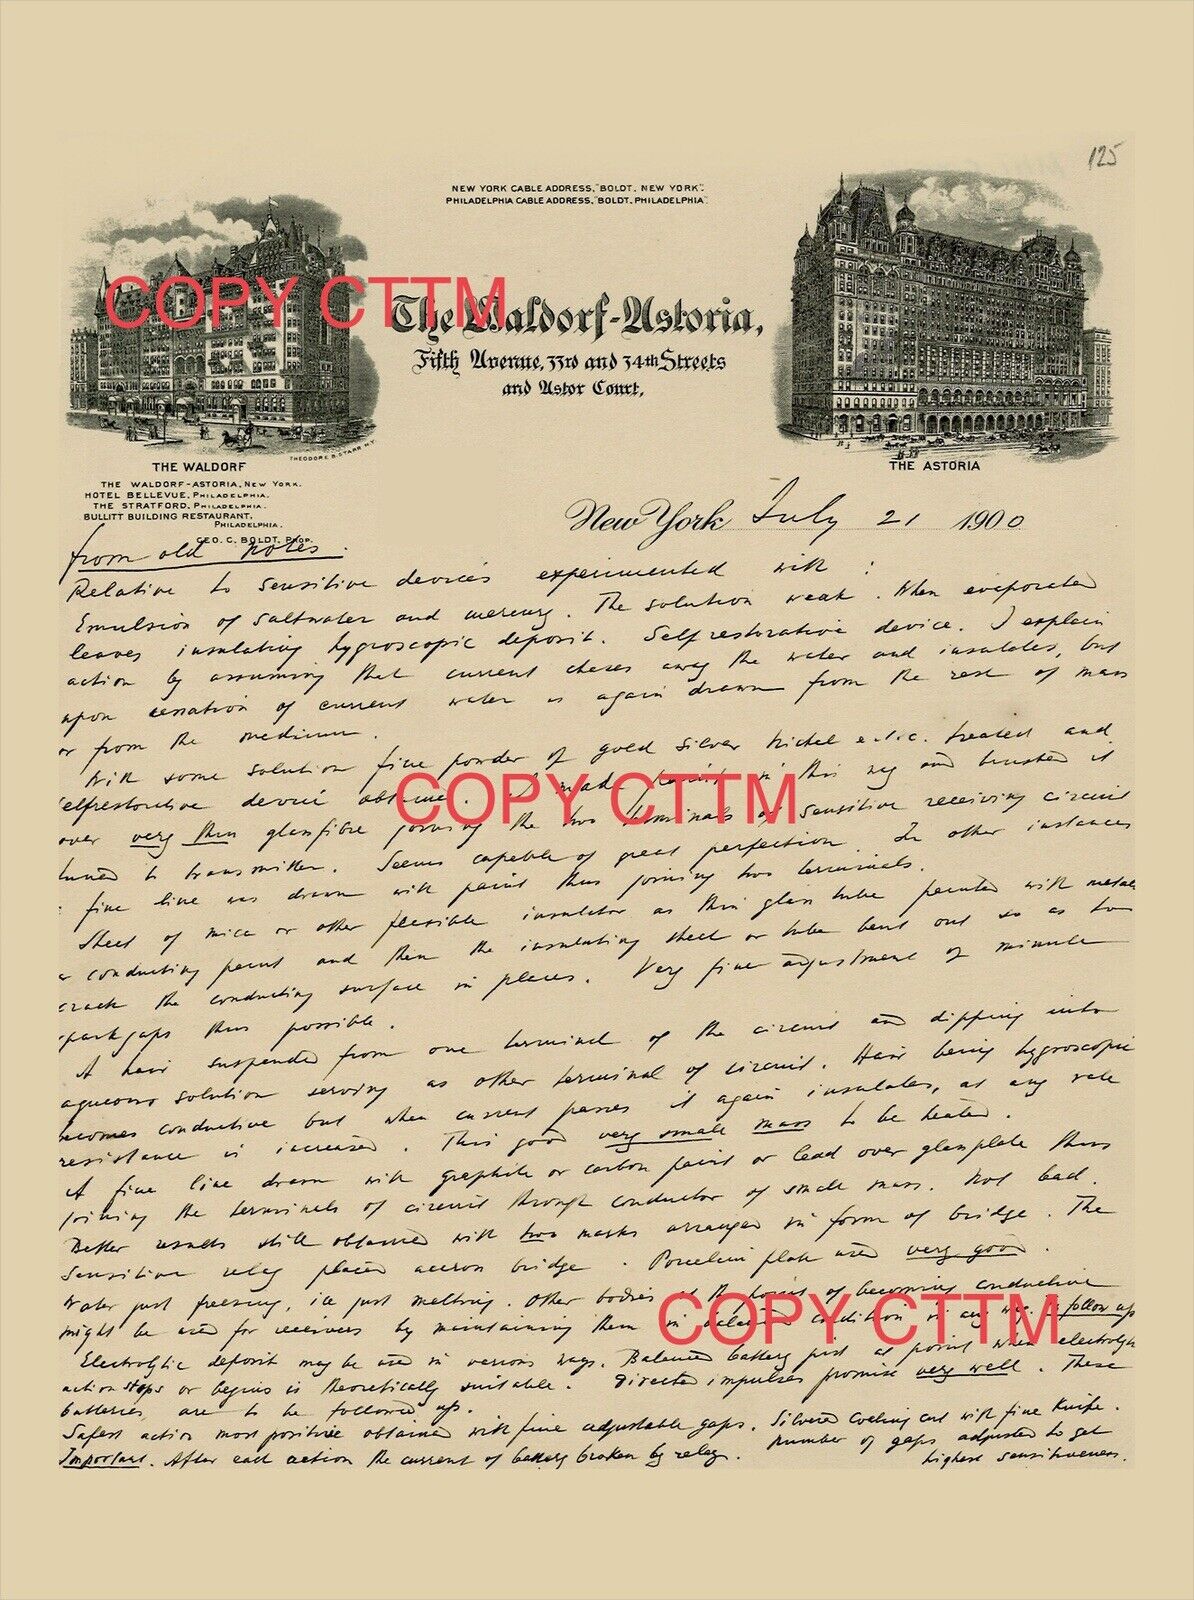 125
NEW YORK CABLE ADDRESS, "BOLDT, NEW YORK".
PHILADELPHIA CABLE ADDRESS, "BOLDT, PHILADELPHIA".
COPY CTTM
The Waldorf-Astoria,
Fifth Avenue, 33rd and 34th Streets
and Astor Court.
THEODORE B. STARR N.Y.
THE WALDORF
THE ASTORIA
THE WALDORF-ASTORIA, NEW YORK.
HOTEL BELLEVUE, PHILADELPHIA.
THE STRATFORD, PHILADELPHIA.
BULLITT BUILDING RESTAURANT,
PHILADELPHIA.
GEO. C. BOLDT, PROP.
New York July 21 1900
from old notes.
Relative to sensitive devices experimented with :
Emulsion of saltwater and mercury. The solution weak. When evaporated
leaves insulating hygroscopic deposit. Selfrestorative device. I explain
action by assuming that current chases away the water and insulates, but
upon cessation of current water is again drawn from the rest of mass
or from the medium.
With some solution fine powder of gold silver nickel e.t.c. treated and
selfrestorative device obtained. I made paint in this way and trusted it
over very thin glassfibre joining the two terminals of sensitive receiving circuit
tuned to transmitter. Seems capable of great perfection. In other instances
fine line was drawn with paint thus joining two terminals.
Sheet of mica or other flexible insulator as thin glass tube painted with metal
conducting paint and then the insulating sheet or tube bent out so as to
crack the conducting surface in places. Very fine adjustment of minute
sparkgaps thus possible.
A hair suspended from one terminal of the circuit and dipping into
aqueous solution serving as other terminal of circuit. Hair being hygroscopic
becomes conductive but when current passes it again insulates, at any rate
resistance is increased. This good very small mass to be heated.
A fine line drawn with graphite or carbon paint or lead over glassplate thus
joining the terminals of circuit through conductor of small mass. Not bad.
Better results still obtained with two marks arranged in form of bridge. The
sensitive relay placed across bridge. Porcelain plate used very good.
Water just freezing, ice just melting. Other bodies at the point of becoming conductive
might be used for receivers by maintaining them in balanced condition in any way. follow up
Electrolytic deposit may be used in various ways. Balanced battery just at point when electrolytic
action stops or begins is theoretically suitable. Directed impulses promise very well. These
batteries are to be followed up.
Safest action most positive obtained with fine adjustable gaps. Silvered coating cut with fine knife.
Important. After each action the current of battery broken by relay. Number of gaps adjusted to get
highest sensitiveness.
COPY CTTM
COPY CTTM